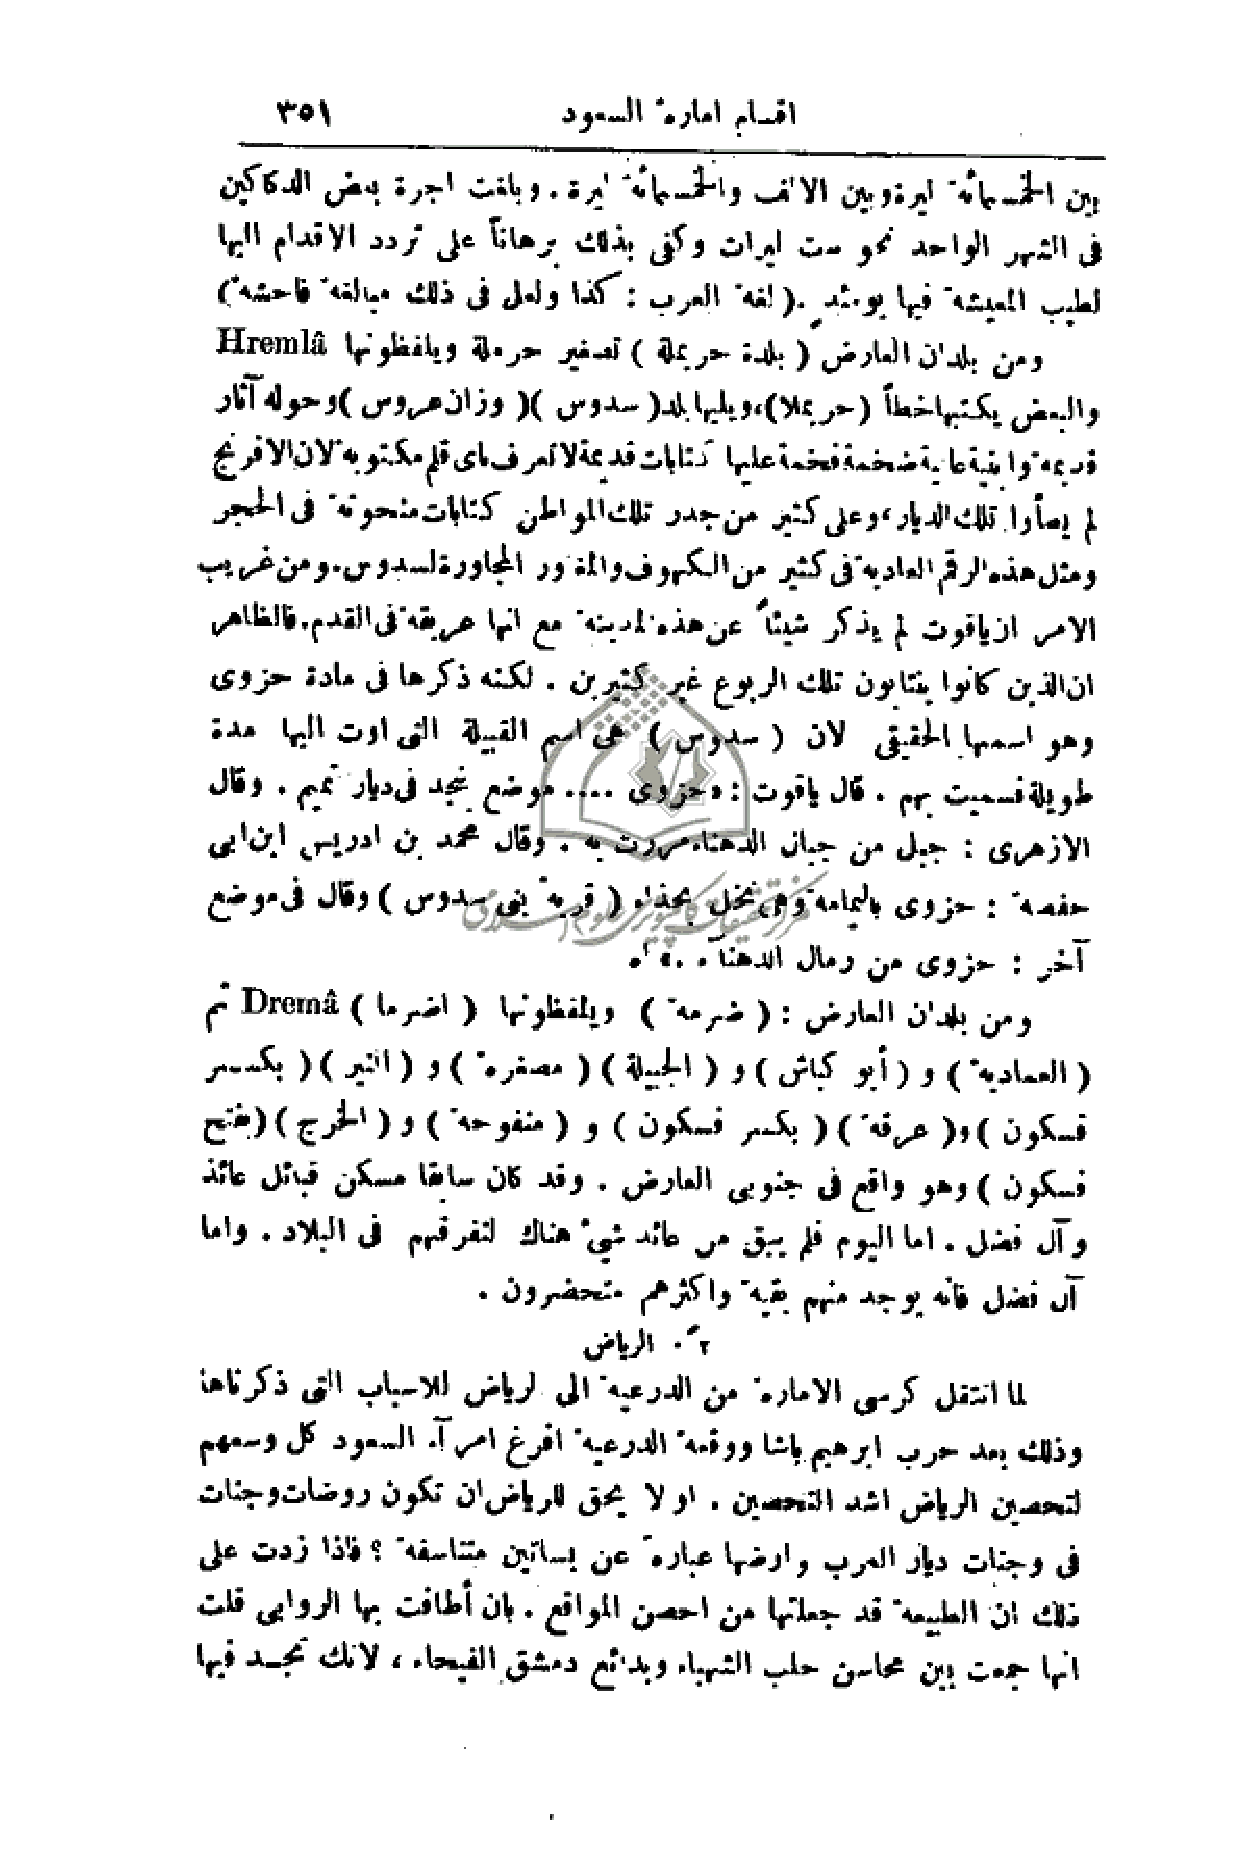 اقسام امارة السعود ٣٥١
بين الخمسمائة ليرة وبين الالف والخمسمائة ليرة . وبلغت اجرة بعض الدكاكين
فى الشهر الواحد نحو ست ليرات وكفى بذلك برهاناً على تردد الاقدام اليها
لطيب المعيشة فيها يومئذ . ( لغة العرب : كذا ولعل فى ذلك مبالغة فاحشة )
ومن بلدان العارض ( بلدة حريملة ) تصغير حرملة ويلفظونها Hremlâ
والبعض يكتبها خطأ (حريملا)، ويليها بلد( سدوس )( وزان عروس )وحوله آثار
قديمة وابنية عادية ضخمة فخمة عليها كتابات قديمة لا تعرف باى قلم مكتوبة لان الافرنج
لم يطأوا تلك الديار، وعلى كثير من جدر تلك المواطن كتابات منحوتة فى الحجر
ومثل هذه الرقم العادية فى كثير من الكهوف والمغاور المجاورة لسدوس. ومن غريب
الامر ان ياقوت لم يذكر شيئاً عن هذه المدينة مع انها عريقة فى القدم. فالظاهر
ان الذين كانوا ينتابون تلك الربوع غير كثيرين . لكنه ذكرها فى مادة حزوى
وهو اسمها الحقيقى لان ( سدوس ) هى اسم القبيلة التى اوت اليها مدة
طويلة فسميت بهم . قال ياقوت : «حزوى .... موضع بنجد فى ديار تميم . وقال
الازهرى : جبل من جبال الدهناء مررت به . وقال محمد بن ادريس ابن ابى
حفصة : حزوى باليمامة وهى نخل بحذاء ( قرية بنى سدوس ) وقال فى موضع
آخر : حزوى من رمال الدهناء . » اه
ومن بلدان العارض : ( ضرمة ) ويلفظونها ( اضرما ) Dremâ ثم
( العمادية ) و ( أبو كباش ) و ( الجبيلة ) ( مصغرة ) و ( النير ) ( بكسر
فسكون ) و( عرقة ) ( بكسر فسكون ) و ( منفوحة ) و ( الخرج ) (بفتح
فسكون ) وهو واقع فى جنوبى العارض . وقد كان سابقا مسكن قبائل عائذ
وآل فضل . اما اليوم فلم يبق من عائذ شىء هناك لتفرقهم فى البلاد . واما
آل فضل فانه يوجد منهم بقية واكثرهم متحضرون .
٢ . الرياض
لما انتقل كرسى الامارة من الدرعية الى الرياض للاسباب التى ذكرناها
وذلك بعد حرب ابرهيم باشا ووقعة الدرعية افرغ امرآء السعود كل وسعهم
لتحصين الرياض اشد التحصين . او لا يحق للرياض ان تكون روضات وجنات
فى وجنات ديار العرب وارضها عبارة عن بساتين متناسقة ؟ فاذا زدت على
ذلك ان الطبيعة قد جعلتها من احصن المواقع . بان أطافت بها الروابى قلت
انها جمعت بين محاسن حلب الشهباء وبدائع دمشق الفيحاء ، لانك تجد فيها